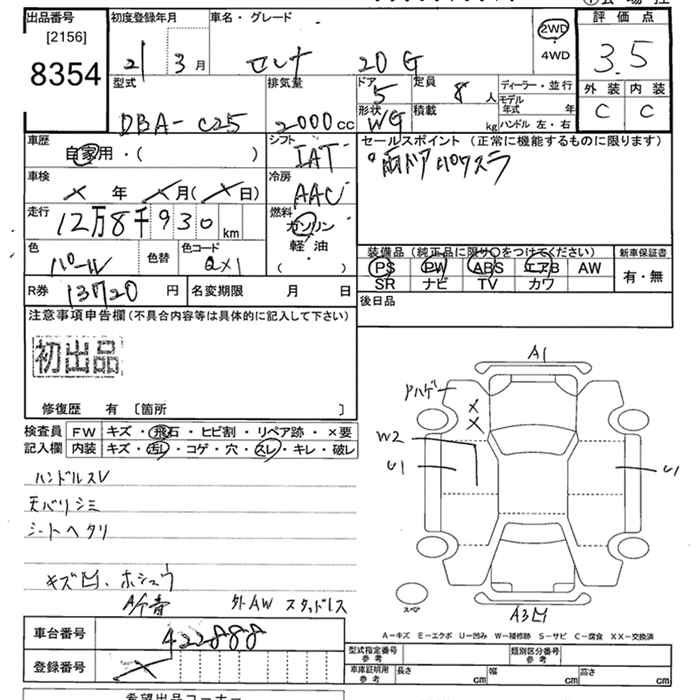 出品番号
[2156]
8354
初度登録年月
21 3月
車名・グレード
セレナ 20G
2WD
4WD
評価点
3.5
外装 内装
C C
型式
DBA- C25
排気量
2000cc
ドア
5
形状
WG
定員
8人
積載
kg
ディーラー・並行
モデル年式 年
ハンドル 左・右
車歴
自家用・( )
シフト
IAT
セールスポイント (正常に機能するものに限ります)
両ドアパワスラ
車検
年 月( 日)
冷房
AAC
走行
12万8千930km
燃料
ガソリン
軽・油
( )
色
パール
色替
色コード
QX1
装備品 (純正品に限り〇をつけてください)
PS PW ABS エアB AW
SR ナビ TV カワ
新車保証書
有・無
R券 13720円
名変期限 月 日
後日品
注意事項申告欄(不具合内容等は具体的に記入して下さい)
初出品
修復歴 有 〔箇所 〕
検査員
記入欄
FW キズ・飛石・ヒビ割・リペア跡・×要
内装 キズ・汚レ・コゲ・穴・スレ・キレ・破レ
ハンドルスレ
天バリシミ
シートヘタリ
キズ凹・ホシュウ
外AW スタッドレス
A1
アハゲ
X
X
W2
U1
U1
スペア
A3凹
A-キズ E-エクボ U-凹み W-補修跡 S-サビ C-腐食 XX-交換済
車台番号
422888
登録番号
型式指定番号
参考
類別区分番号
参考
車庫証明用
参考
長さ cm
幅 cm
高さ cm
希望出品コーナー